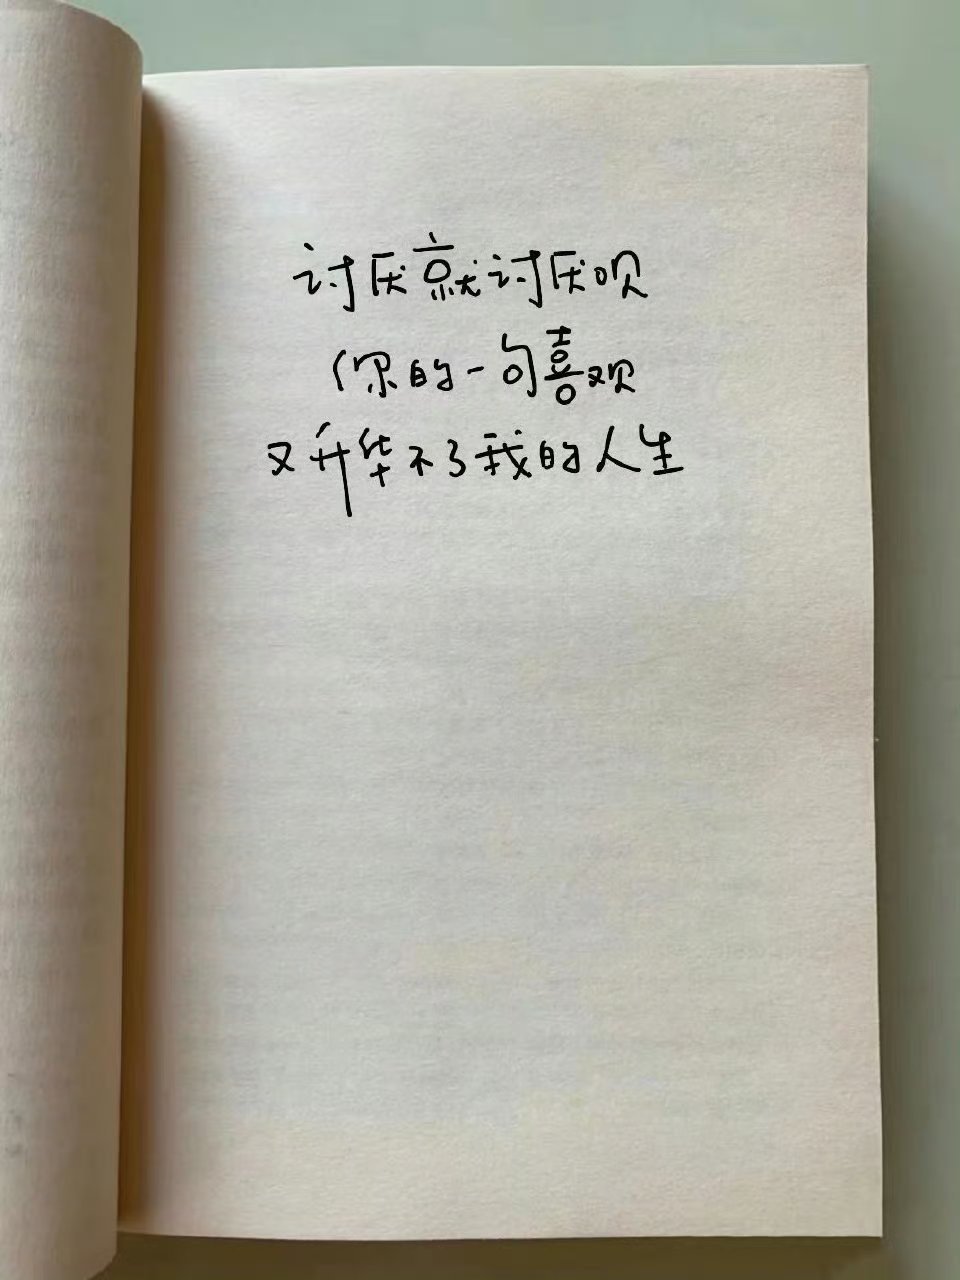 讨厌就讨厌呗
你的一句喜欢
又升华不了我的人生